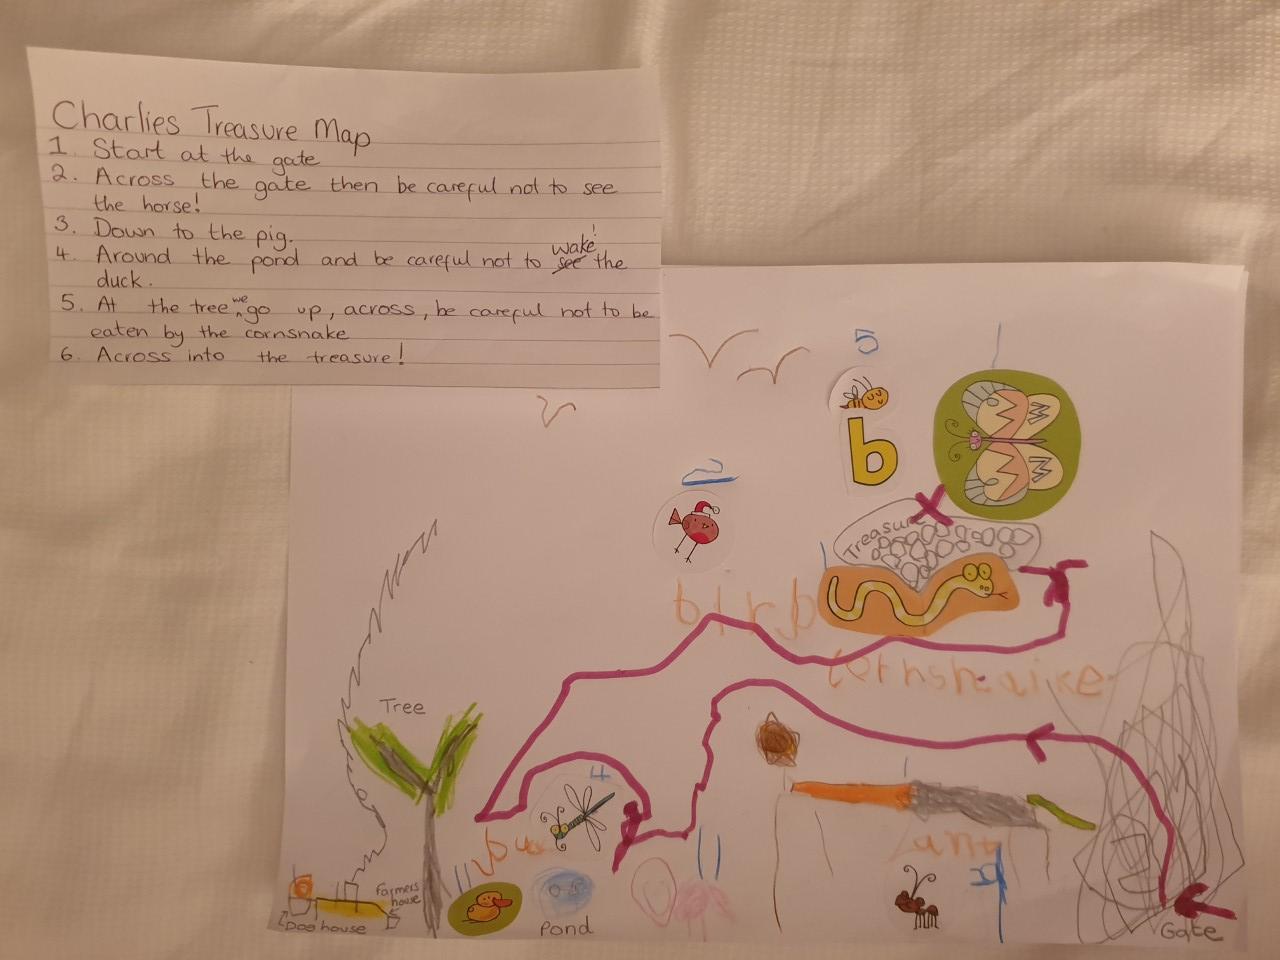 Charlies Treasure Map
1. Start at the gate
2. Across the gate then be careful not to see
the horse!
3. Down to the pig.
4. Around the pond and be careful not to see wake! the
duck.
5. At the tree we go up, across, be careful not to be
eaten by the cornsnake
6. Across into the treasure!
5
b
2
Treasure
birb
cornsnaike
Tree
4
bu
ant
11
Farmers
house
Dog house
Pond
Gate